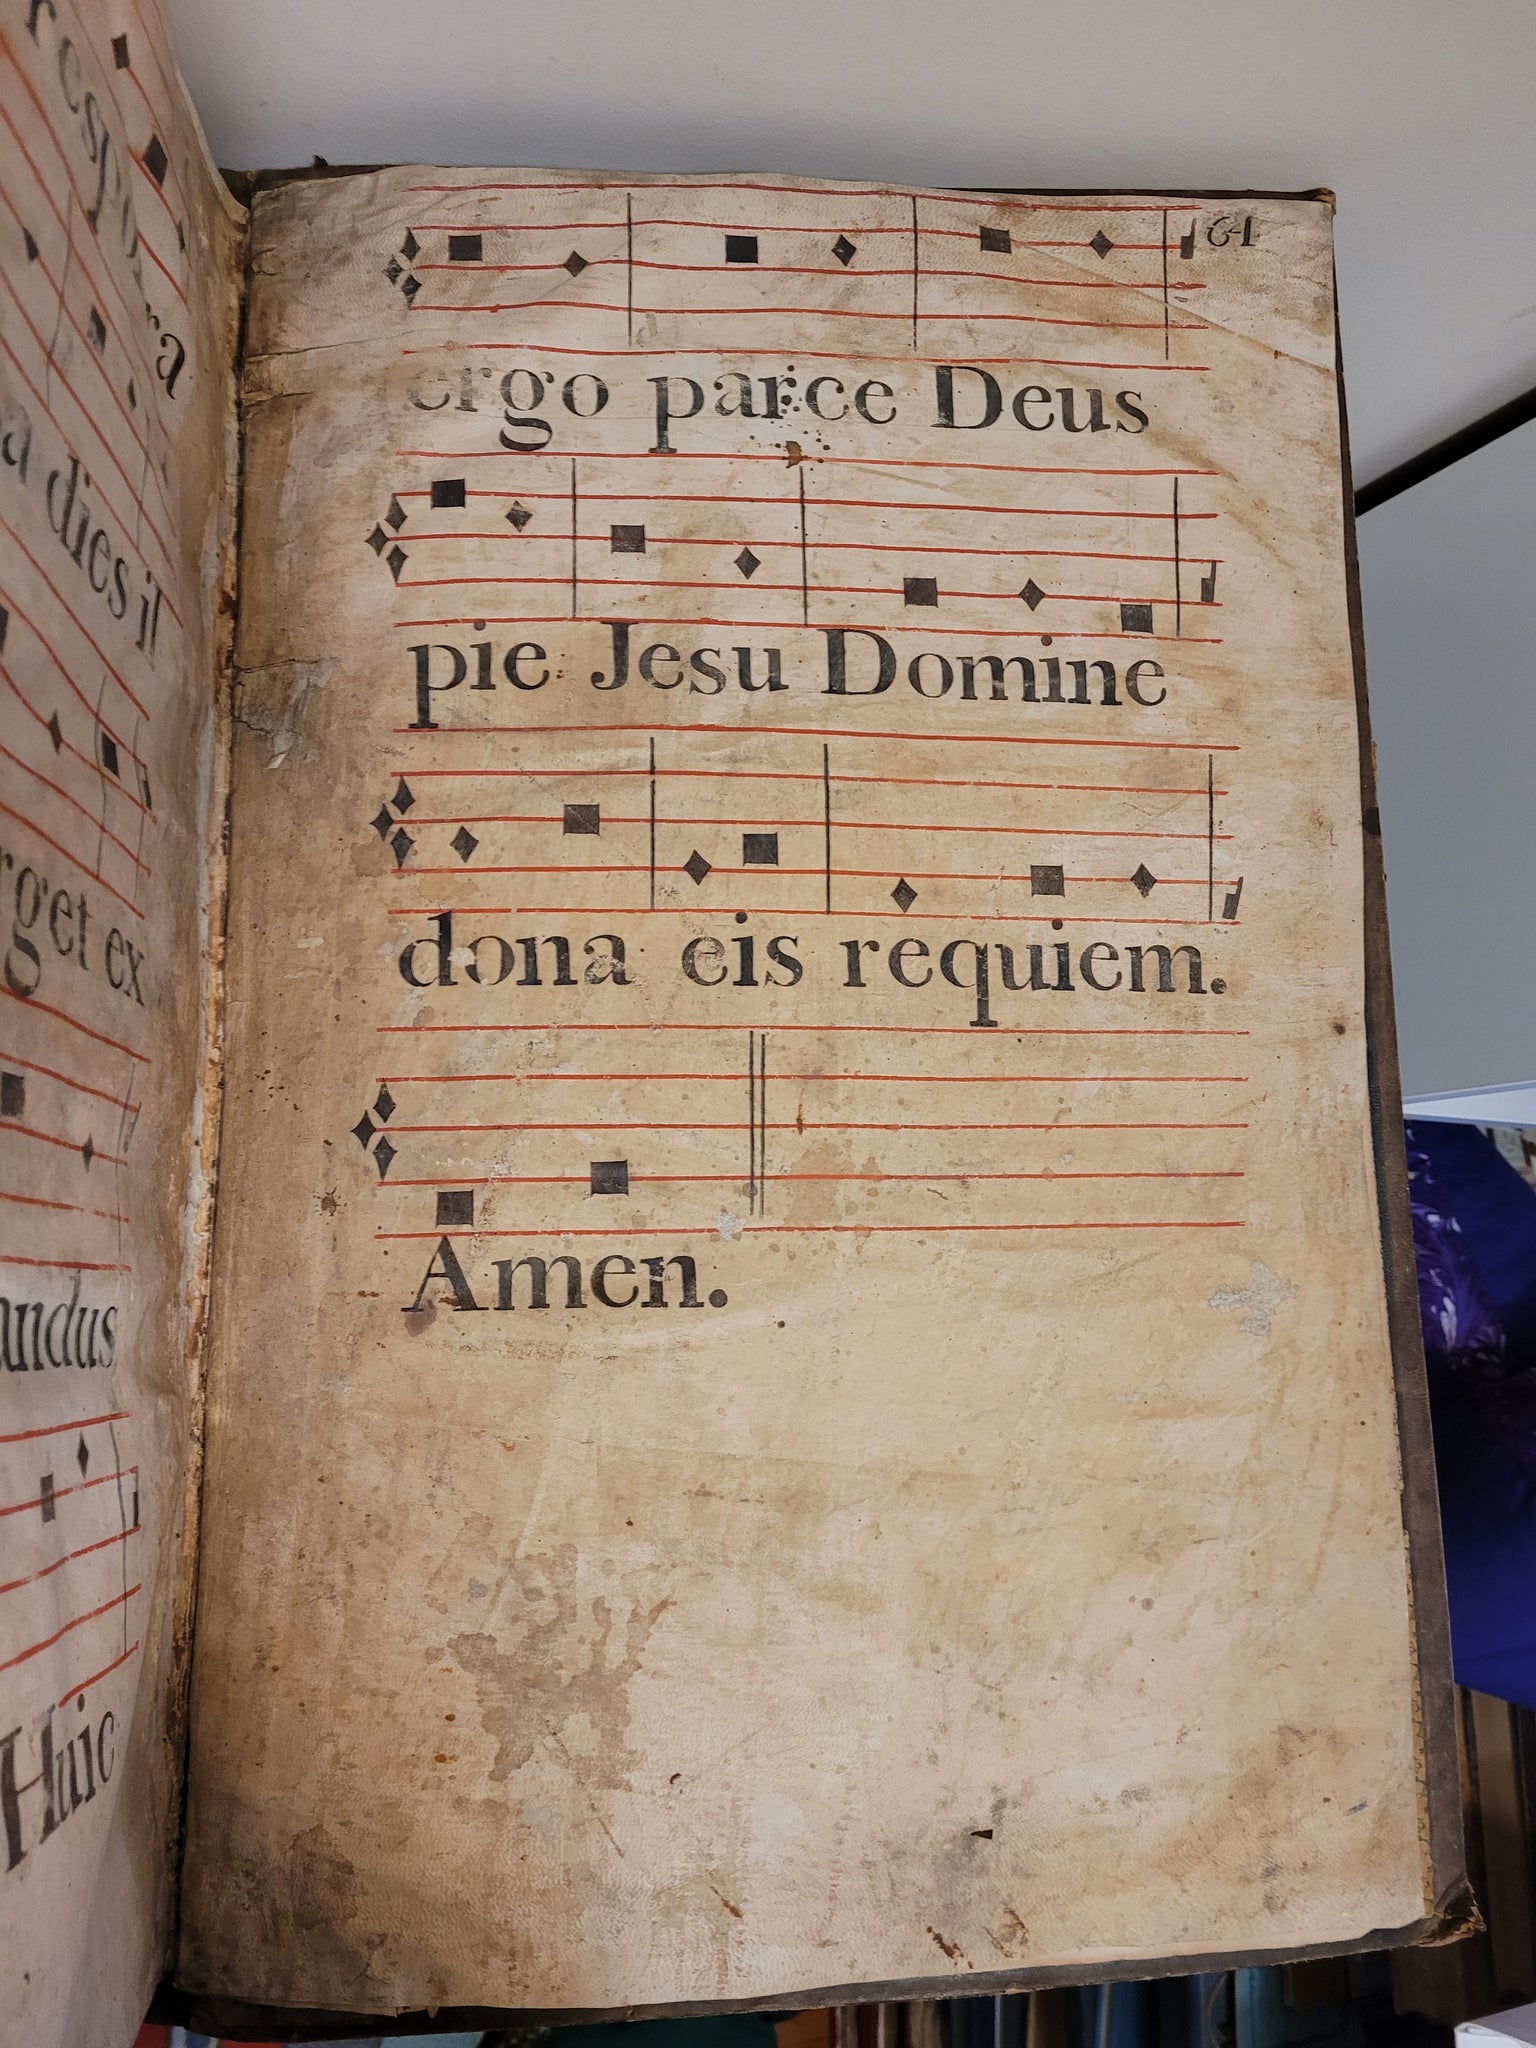 resp vra
a dies il
rget ex
andus
Huic
61
ergo parce Deus
pie Jesu Domine
dona eis requiem.
Amen.